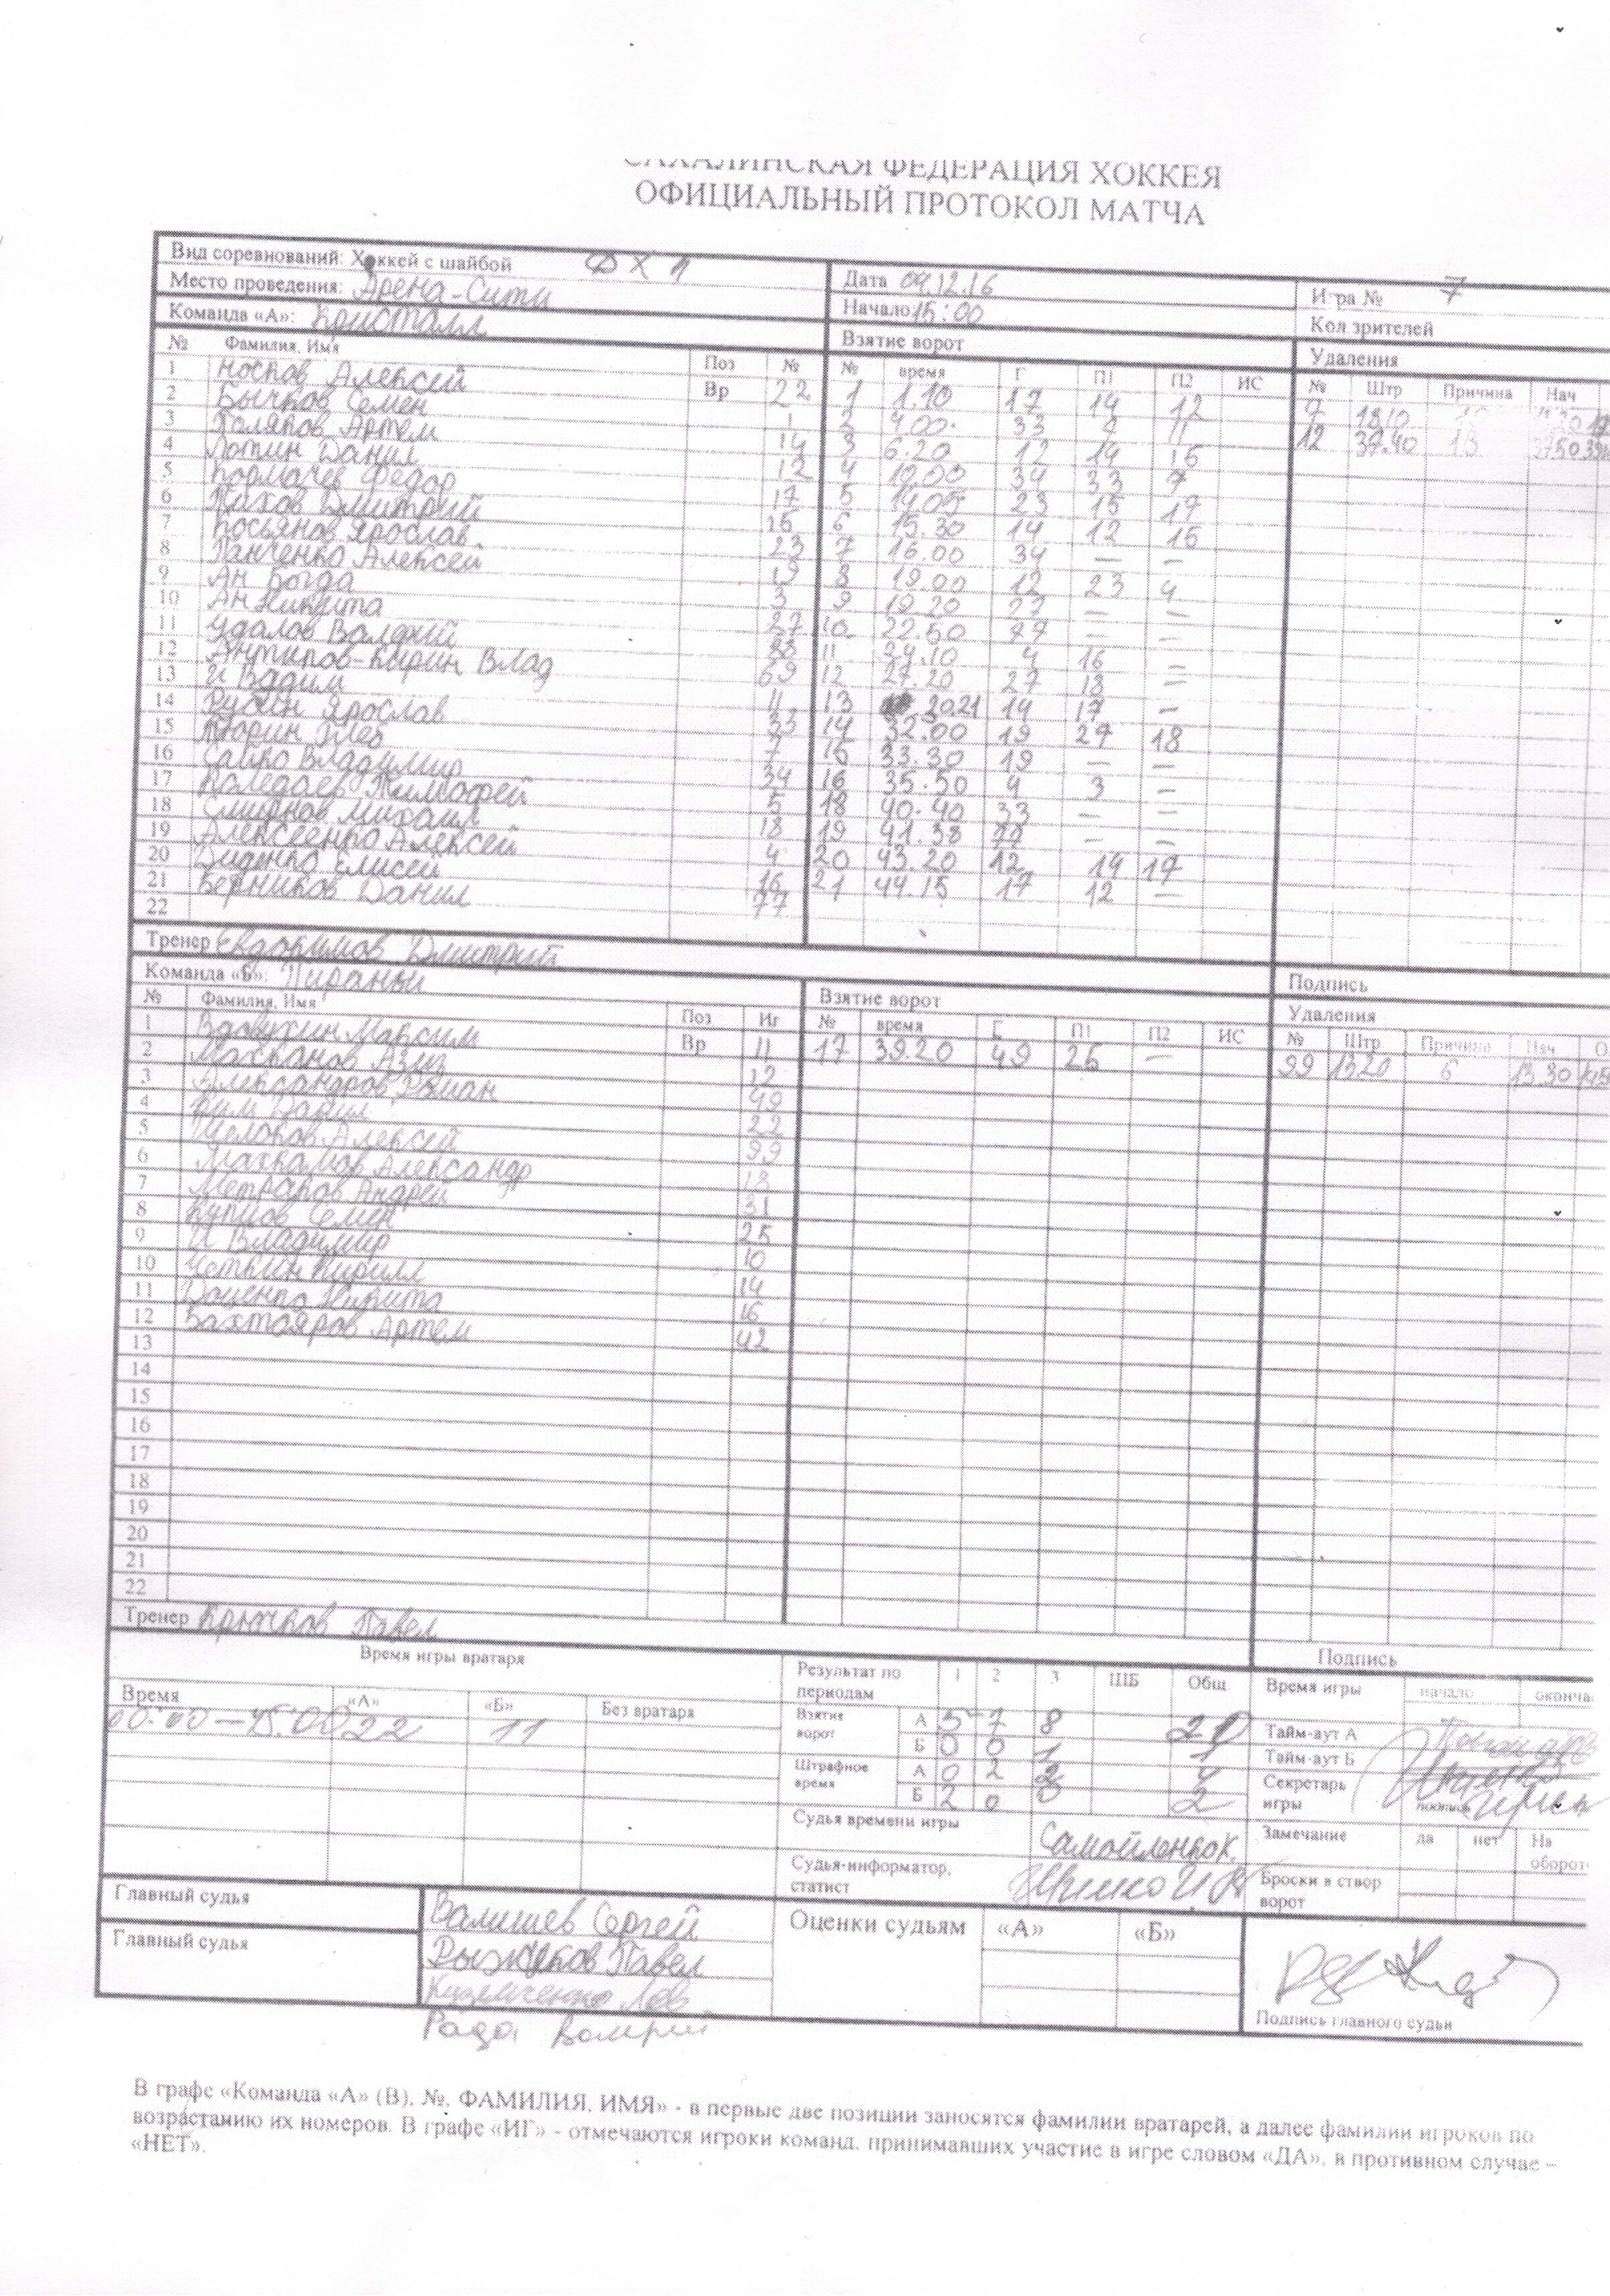 САХАЛИНСКАЯ ФЕДЕРАЦИЯ ХОККЕЯ
ОФИЦИАЛЬНЫЙ ПРОТОКОЛ МАТЧА
Вид соревнований: Хоккей с шайбой Дата 04.12.16 Игра № 7
Место проведения: Арена-Сити Начало 15:00 Кол зрителей
Команда «А»: Кристалл Взятие ворот Удаления
№ Фамилия, Имя Поз № № время Г П1 П2 ИС № Штр Причина Нач
1 Носков Алексей Вр 22 1 1.10 17 14 12 7 18.10
2 Бычков Семен 1 2 4.00 33 4 11 12 37.40 13
3 Поляков Артем 14 3 6.20 12 14 15
4 Лопин Данил 12 4 10.00 34 33 7
5 Кормачев Федор 17 5 14.05 23 15 17
6 Пахов Дмитрий 15 6 15.30 14 12 15
7 Косьянов Ярослав 23 7 16.00 34 — —
8 Панченко Алексей 19 8 19.00 12 23 4
9 Ан Богда 3 9 19.20 27 — —
10 Ан Никита 27 10 22.50 77 — —
11 Удалов Валерий 88 11 24.10 4 16 —
12 Антипов-Кырин Влад 69 12 27.20 27 18 —
13 И Вадим 11 13 30.21 14 17 —
14 Рубин Ярослав 33 14 32.00 19 27 18
15 Тюрин Глеб 7 15 33.30 19 — —
16 Сайко Владимир 34 16 35.50 4 3 —
17 Тимофей 5 18 40.40 33 — —
18 Смирнов Михаил 18 19 41.38 77 — —
19 Алексеенко Алексей 4 20 43.20 12 14 17
20 Диденко Елисей 16 21 44.15 17 12 —
21 Берников Данил 77
22
Тренер Евдокимов Дмитрий Подпись
Команда «Б»: Пираньи Взятие ворот Удаления
№ Фамилия, Имя Поз Иг № время Г П1 П2 ИС № Штр Причина Нач О
1 Вдовухин Максим Вр 11 17 39.20 49 25 — 99 13.20 6 13.30
2 Махканов Азиз 12
3 Александров Роман 49
4 Ким Данил 22
5 Шелоков Алексей 99
6 Махкамов Александр 18
7 Метраков Андрей 31
8 Купцов Семен 25
9 И Владимир 10
10 Четкин Кирилл 14
11 Доценко Никита 16
12 Бахтояров Артем 42
13
14
15
16
17
18
19
20
21
22
Тренер Крючков Павел Подпись
Время игры вратаря Результат по периодам 1 2 3 ШБ Общ Время игры начало оконча
Время «А» «Б» Без вратаря Взятие ворот А 5 7 8 20 Тайм-аут А
00:00 — 45:00 22 11 Б 0 0 1 1 Тайм-аут Б
Штрафное время А 0 2 2 4 Секретарь игры подпись
Б 2 0 0 2
Судья времени игры Самойленко К. Замечание да нет На оборот
Судья-информатор, статист Броски в створ ворот
Главный судья Валишев Сергей Оценки судьям «А» «Б»
Главный судья Рыжков Павел
Кузьмиченко Лев
Рада Валерий Подпись главного судьи
В графе «Команда «А» (В), №, ФАМИЛИЯ, ИМЯ» - в первые две позиции заносятся фамилии вратарей, а далее фамилии игроков по
возрастанию их номеров. В графе «ИГ» - отмечаются игроки команд, принимавших участие в игре словом «ДА», в противном случае –
«НЕТ».